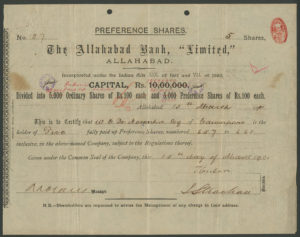 PREFERENCE SHARES.
No. 27 5 Shares.
The Allahabad Bank, "Limited,"
ALLAHABAD.
Incorporated under the Indian Acts XIX of 1857 and VII of 1860.
CAPITAL, Rs. 10,00,000,
Divided into 6,000 Ordinary Shares of Rs.100 each and 4,000 Preference Shares of Rs.100 each.
Allahabad
This is to Certify that of Cawnpore is the
holder of Five fully paid up Preference Shares numbered 657 to 661
inclusive, in the above-named Company, subject to the Regulations thereof.
Given under the Common Seal of the Company, the day of March
Manager
N.B.—Shareholders are requested to advise the Management of any change in their address.